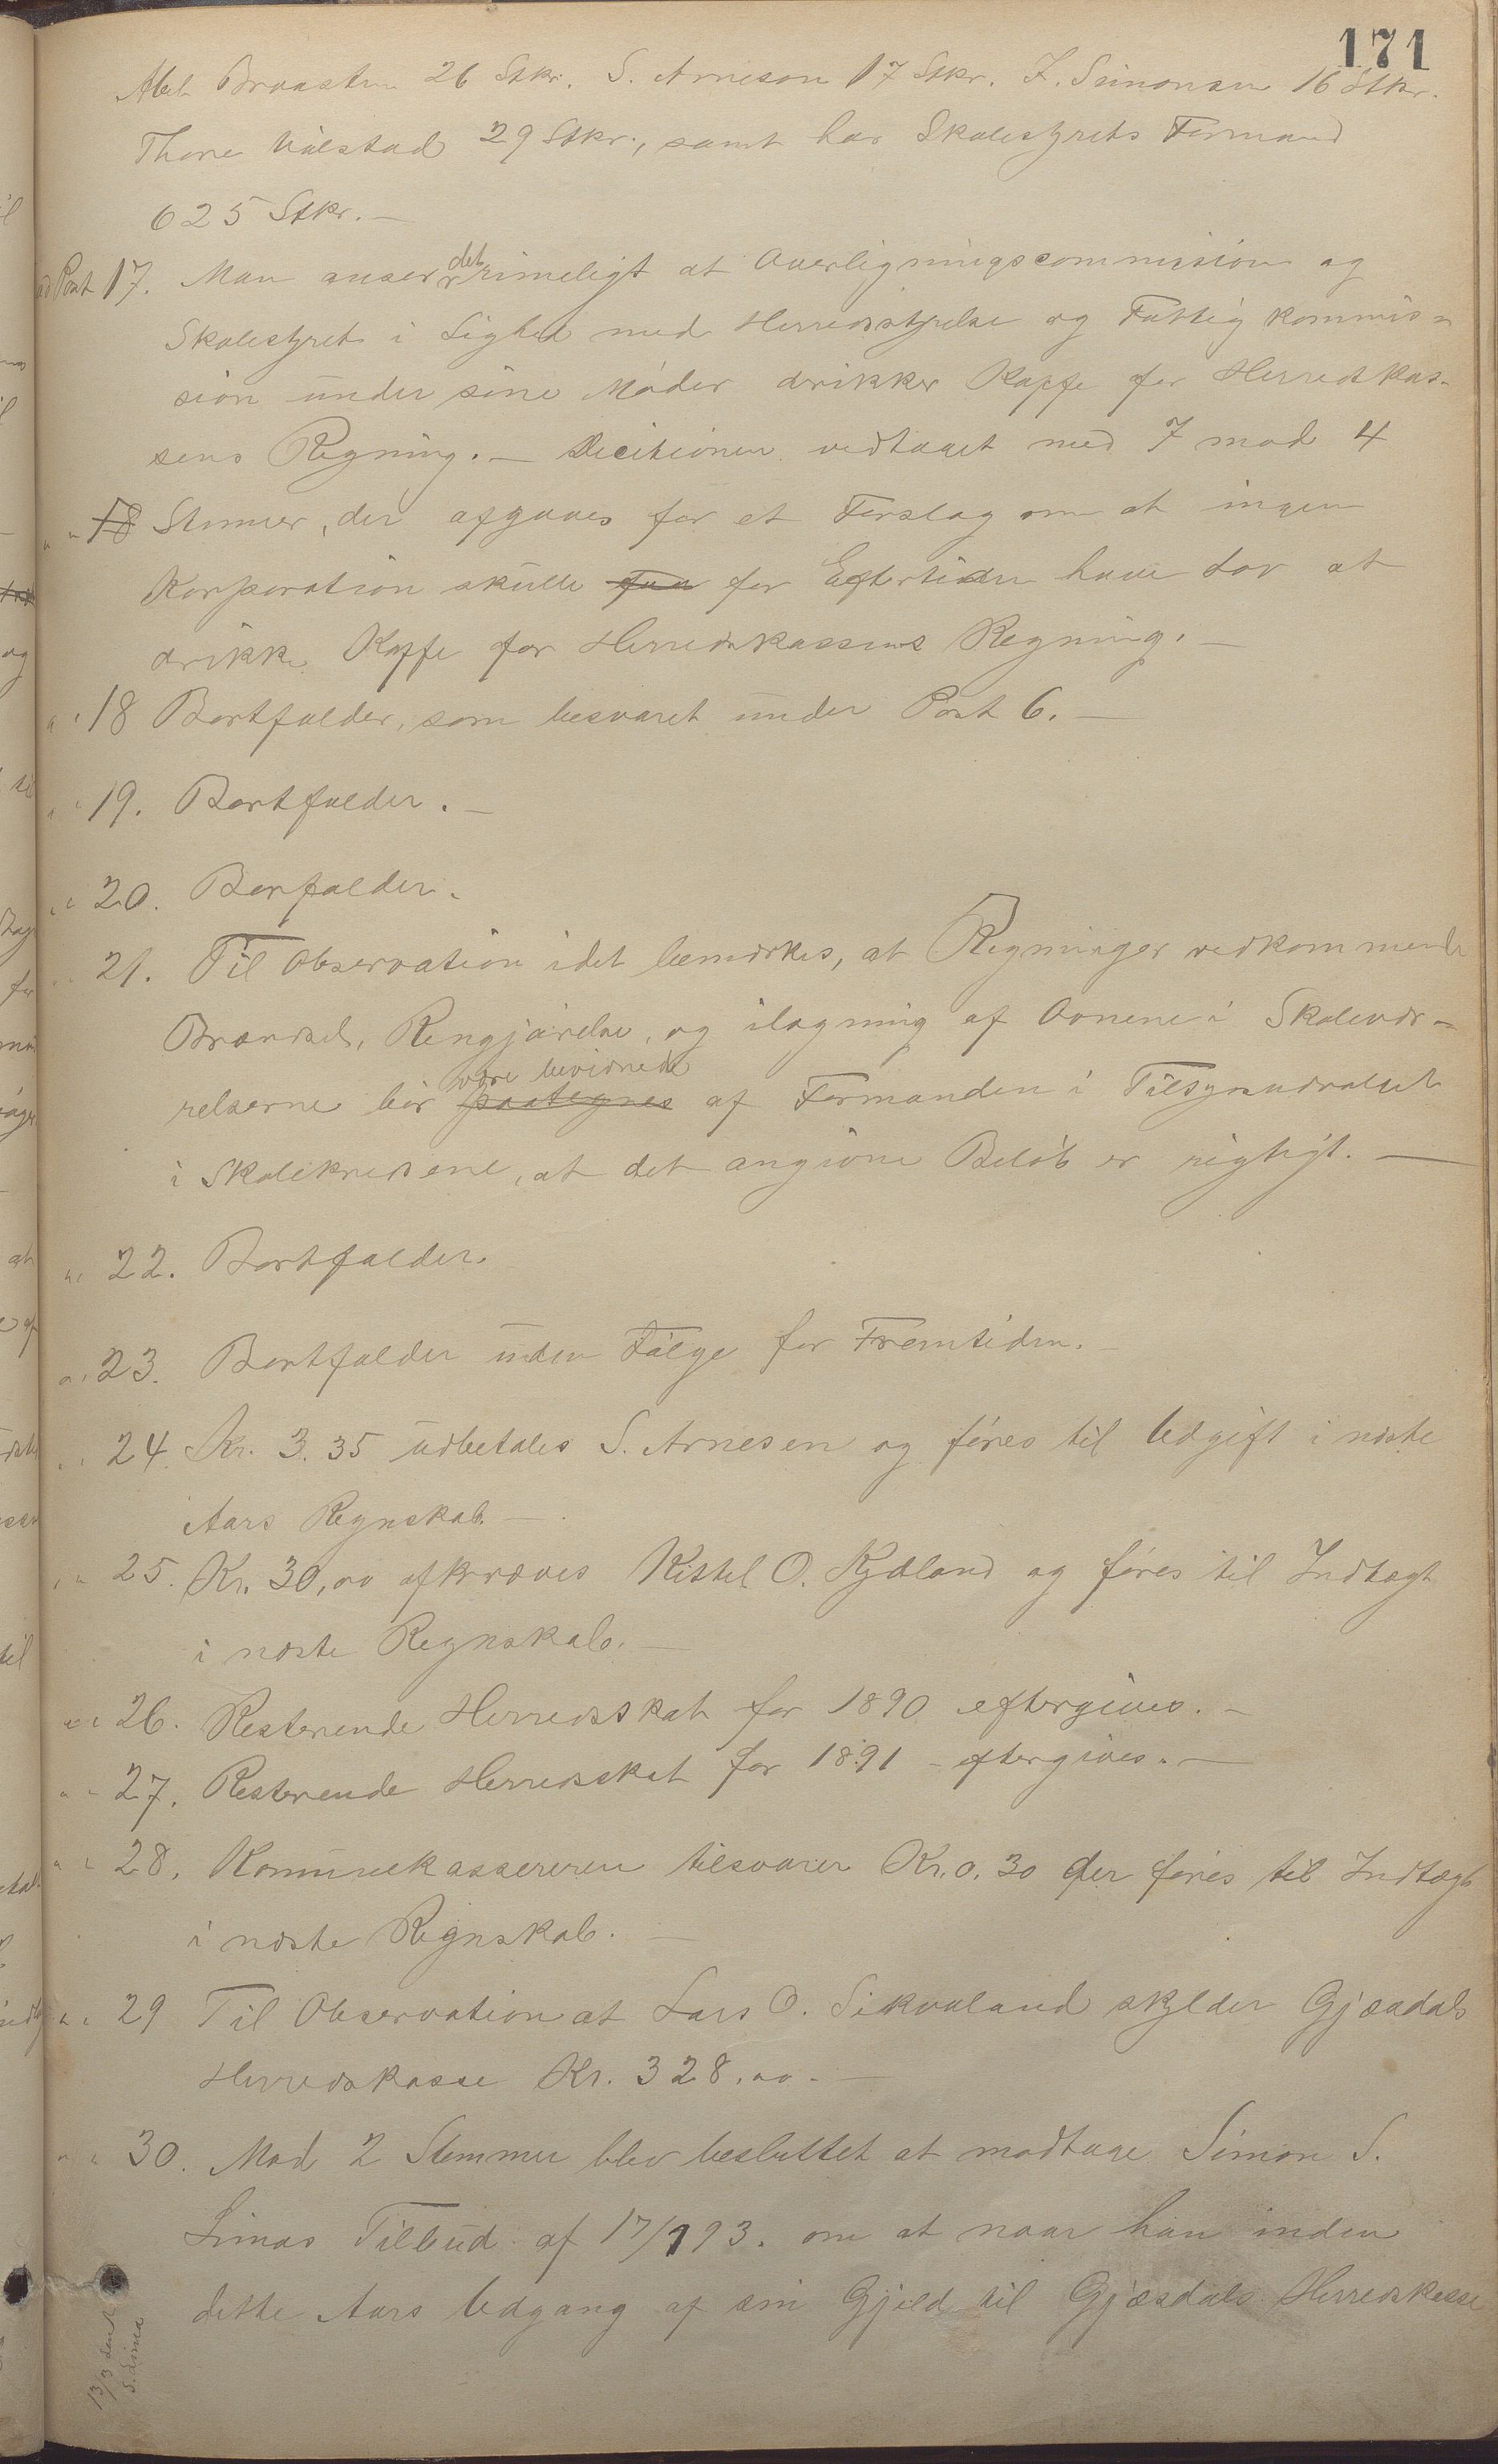 171
Abel Braasten 26 Stkr. S. Arneson 17 Stkr. J. Simonsen 16 Stkr.
Thore Ualstad 29 Stkr., samt har Skolestyrets Formand
625 Stkr. —
ad Post 17. Man anser det rimeligt at Overligningscommission og
Skolestyret i Lighed med Herredsstyrelse og Fattigkommis=
sion under sine Møder drikker Kaffe for Herredskas-
sens Regning. — Decitionen vedtaget med 7 mod 4
" " 18 Stemmer, der afgaves for et Forslag om at ingen
Korporation skulle faa for Eftertiden have Lov at
drikke Kaffe for Herredskassens Regning. —
" " 18 Bortfalder, som besvaret under Post 6. —
" " 19. Bortfalder. —
" " 20. Borfalder.
" " 21. Til Observation idet bemærkes, at Regninger vedkommende
Brændsel, Rengjørelse, og ilægning af Ovnene i Skolevær=
være bevidnede
relserne bør paategnes af Formanden i Tilsynsudvalget
i Skolekredsene, at det angivne Beløb er rigtigt. —
" " 22. Bortfalder.
" " 23. Bortfalder uden Følge for Fremtiden. —
" " 24. Kr. 3.35 udbetales S. Arnesen og føres til Udgift i næste
Aars Regnskab. —
" " 25. Kr. 30,00 afkræves Kittel O. Kydland og føres til Indtægt
i næste Regnskab. —
" " 26. Resterende Herredsskat for 1890 eftergives. —
" " 27. Resterende Herredsskat for 1891 - eftergives. —
" " 28. Kommunekassereren tilsvarer Kr. 0.30 der føres til Indtægt
i næste Regnskab. —
" " 29 Til Observation at Lars O. Sikvaland skylder Gjæsdals
Herredskasse Kr. 328.00. —
" " 30. Mod 2 Stemmer blev besluttet at modtage Simon S.
Limas Tilbud af 17/193. om at naar han inden
dette Aars Udgang af sin Gjeld til Gjæsdals Herredskasse
13/3 sendt
S. Lima